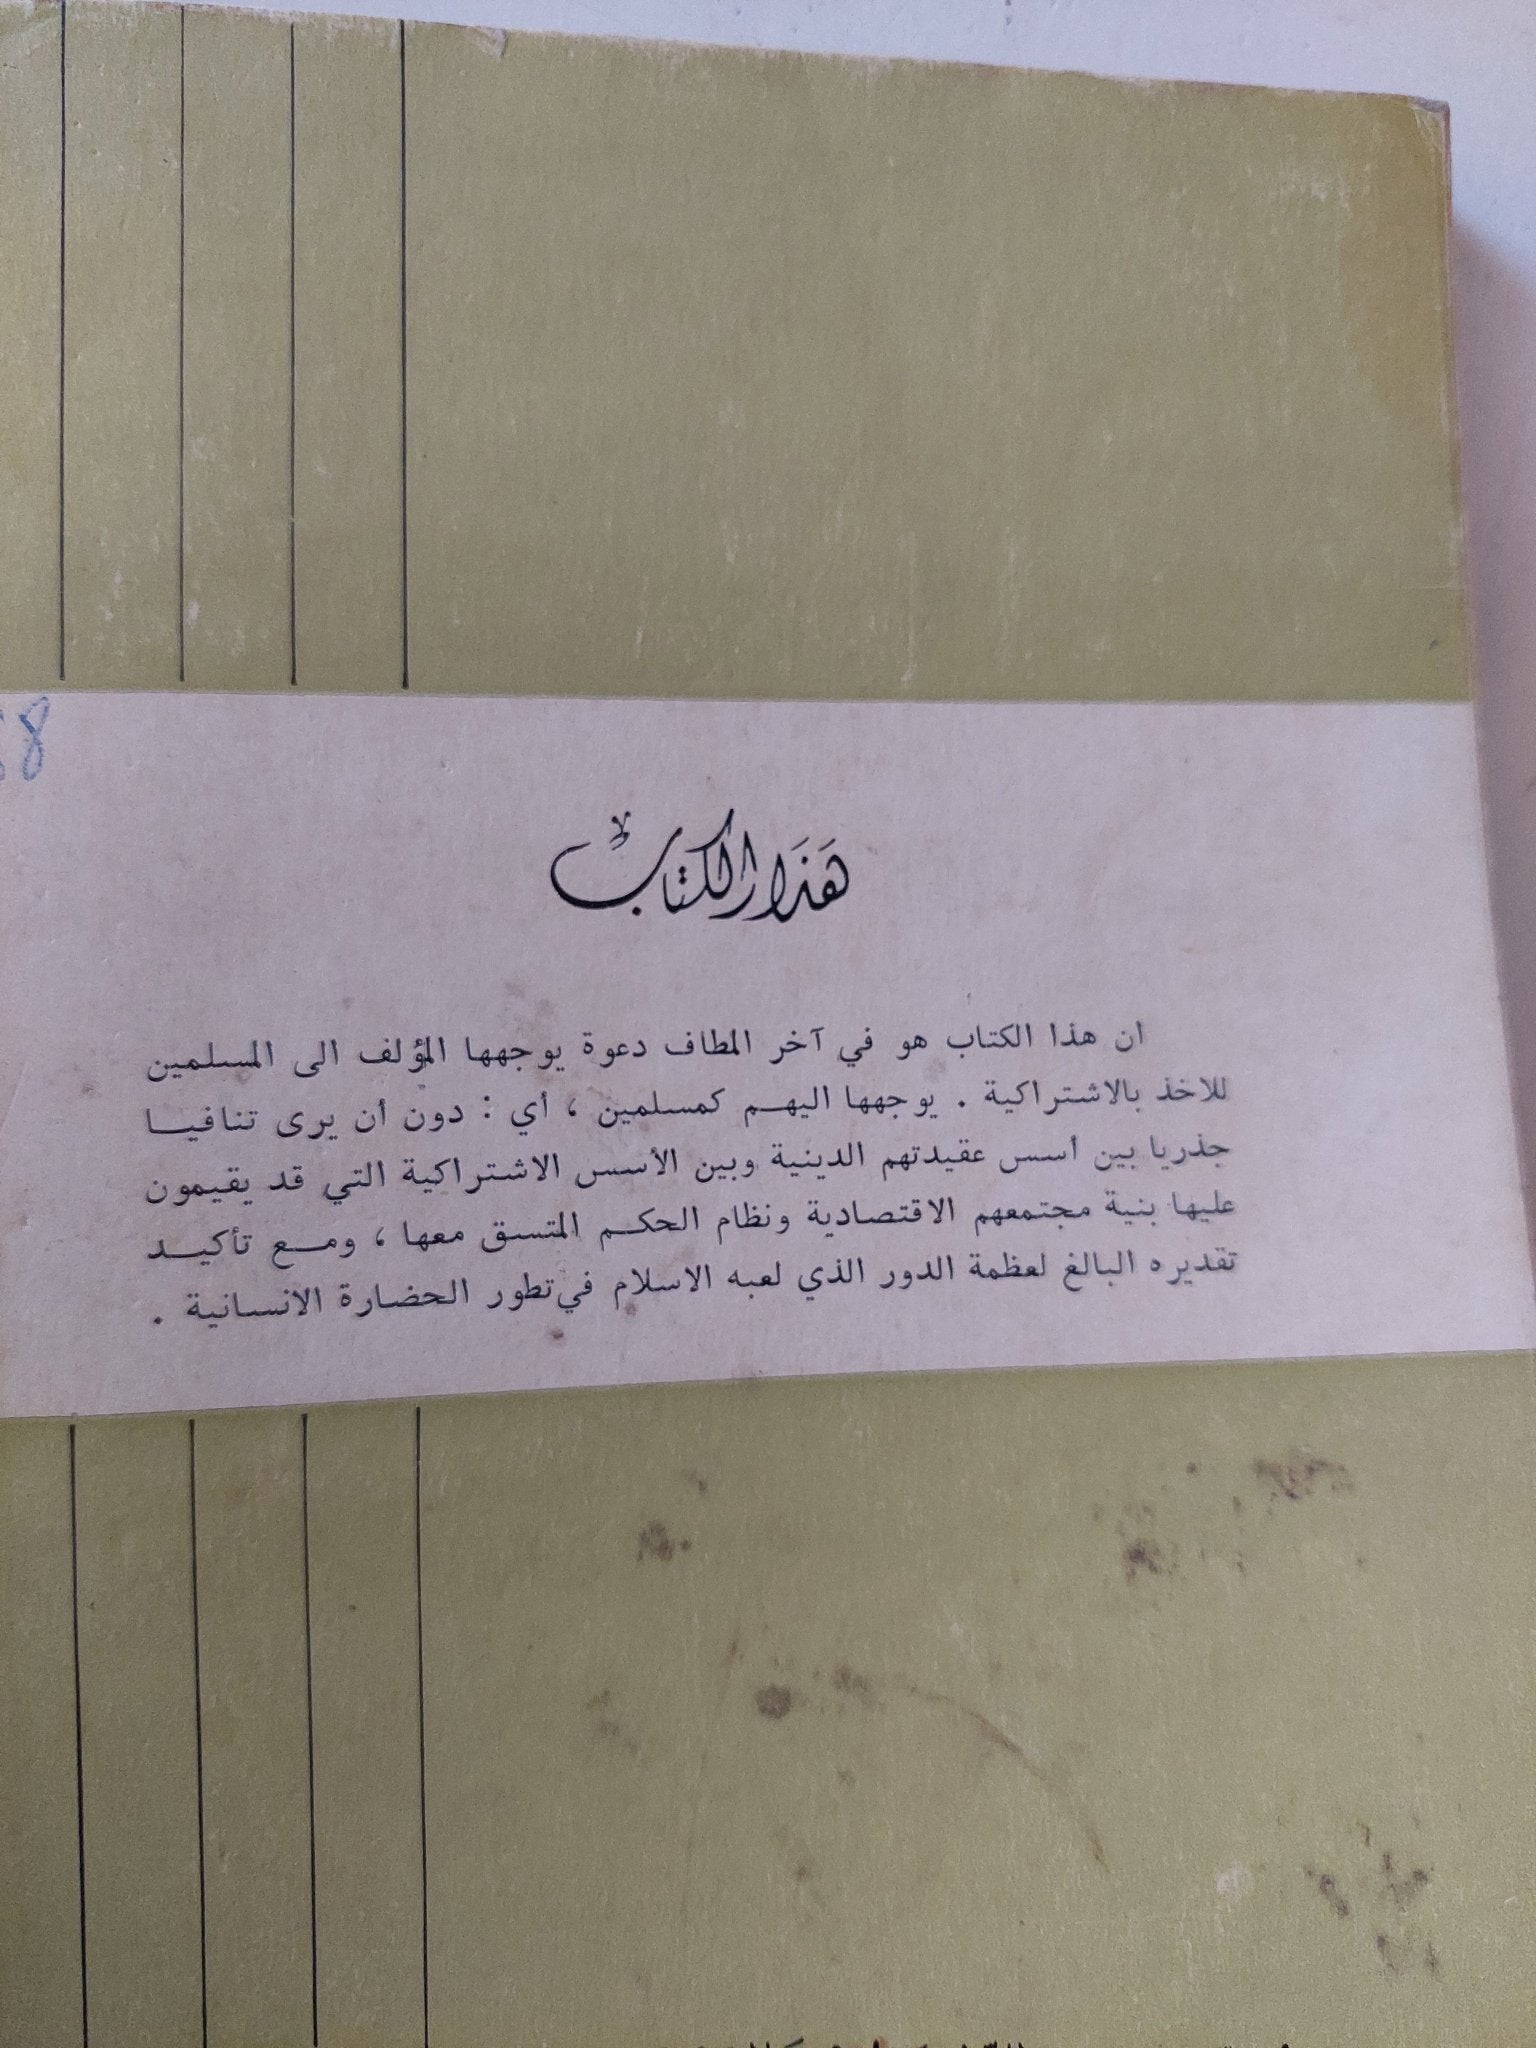 68
هَذَا الكتاب
ان هذا الكتاب هو في آخر المطاف دعوة يوجهها المؤلف الى المسلمين
للاخذ بالاشتراكية . يوجهها اليهم كمسلمين ، أي : دون أن يرى تنافيا
جذريا بين أسس عقيدتهم الدينية وبين الأسس الاشتراكية التي قد يقيمون
عليها بنية مجتمعهم الاقتصادية ونظام الحكم المتسق معها ، ومع تأكيد
تقديره البالغ لعظمة الدور الذي لعبه الاسلام في تطور الحضارة الانسانية .